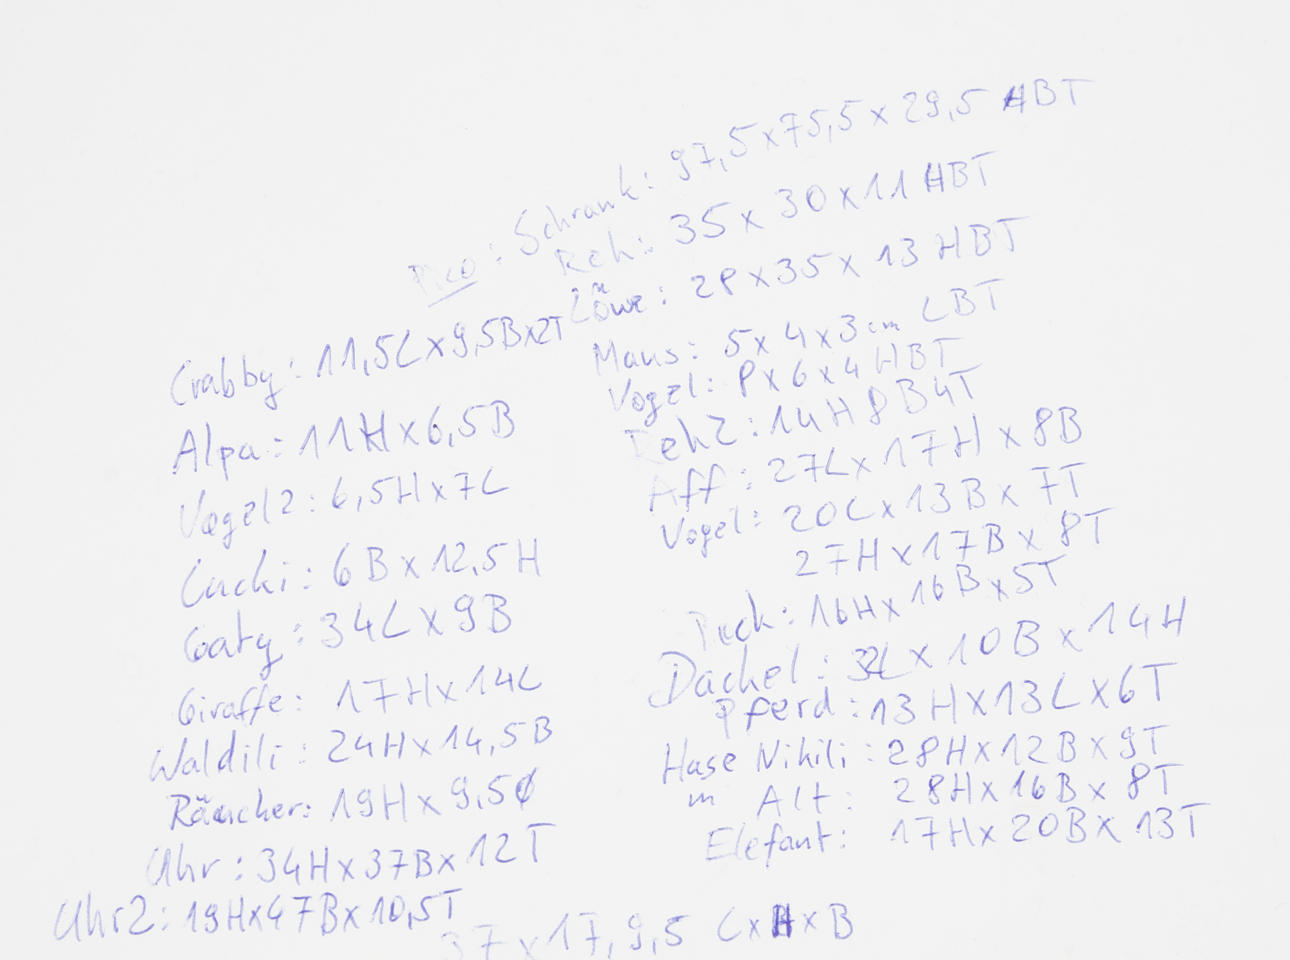 Pico: Schrank: 97,5x75,5x29,5 HBT
Reh: 35x30x11 HBT
Löwe: 28x35x13 HBT
Maus: 5x4x3cm LBT
Vogel: 8x6x4 HBT
Reh2: 14H 8B4T
Aff: 27Lx17Hx8B
Vogel: 20Lx13Bx7T
27Hx17Bx8T
16Hx16Bx5T
Dackel: 32Lx10Bx14H
Pferd: 13Hx13Lx6T
Hase Nikili: 28Hx12Bx9T
" Alt: 28Hx16Bx8T
Elefant: 17Hx20Bx13T
Crabby: 11,5Lx9,5Bx2T
Alpa: 11Hx6,5B
Vogel2: 6,5Hx7L
6Bx12,5H
Gaty: 34Lx9B
Giraffe: 17Hx14L
Waldili: 24Hx14,5B
Räucher: 19Hx9,5Ø
Uhr: 34Hx37Bx12T
Uhr2: 19Hx47Bx10,5T
37x17,9,5 LxHxB